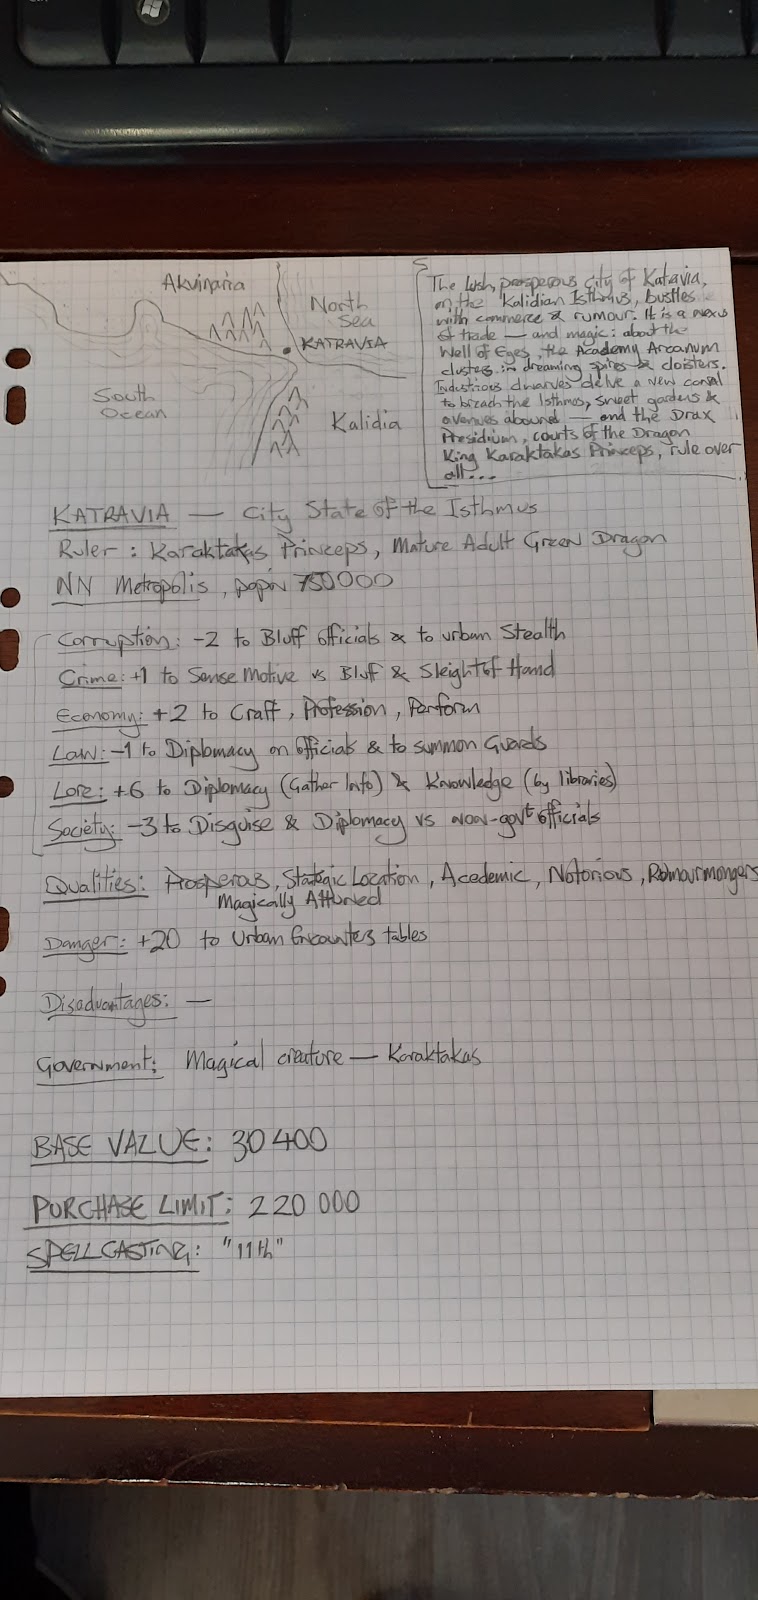 Akvinaria
North
Sea
KATRAVIA
South
Ocean
Kalidia
The lush, prosperous city of Katavia,
on the Kalidian Isthmus, bustles
with commerce & rumour. It is a nexus
of trade — and magic: about the
Well of Eyes, the Academy Arcanum
clusters in dreaming spires & cloisters.
Industrious dwarves delve a new canal
to breach the Isthmus, sweet gardens &
avenues abound — and the Drax
Presidium, courts of the Dragon
King Karaktakas Princeps, rule over
all...
KATRAVIA — City State of the Isthmus
Ruler: Karaktakas Princeps, Mature Adult Green Dragon
NN Metropolis, pop'n 750000
Corruption: -2 to Bluff officials & to urban Stealth
Crime: +1 to Sense Motive vs Bluff & Sleight of Hand
Economy: +2 to Craft, Profession, Perform
Law: -1 to Diplomacy on officials & to summon Guards
Lore: +6 to Diplomacy (Gather Info) & Knowledge (by libraries)
Society: -3 to Disguise & Diplomacy vs non-gov't officials
Qualities: Prosperous, Strategic Location, Acedemic, Notorious, Rumourmongers
Magically Attuned
Danger: +20 to Urban Encounters tables
Disadvantages: —
Government: Magical creature — Karaktakas
BASE VALUE: 30 400
PURCHASE LIMIT: 220 000
SPELLCASTING: "11th"